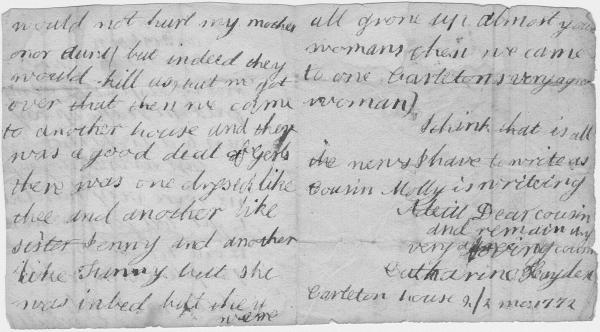 would not hurt my mother
onor aunt but indeed they
would kill us, but we got
over that then we came
to another house and they
was a good deal of Gerls
there was one dressed like
thee and another like
sister Jenny and another
like Fanny but she
was in bed but they
were
all grone up almost
womans then we came
to one Carletons very
woman
I think that is all
the news I have to write as
Cousin Molly is writing
Dear cousin
and remain thy
very loving cousin
Catharine Hayden
Carleton house 2 mo: 1772